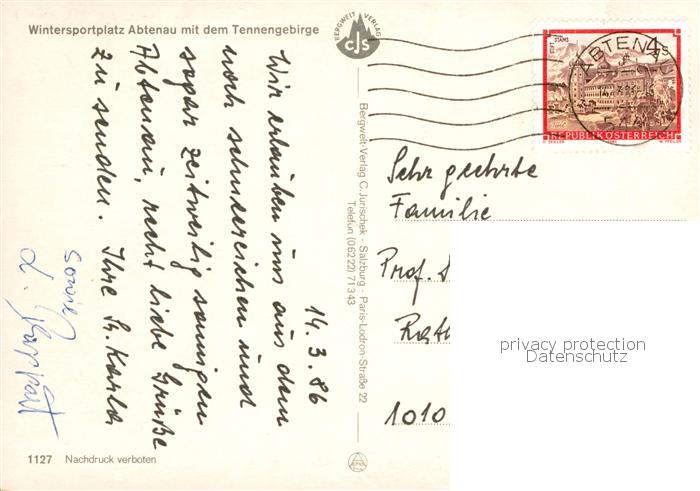 Wintersportplatz Abtenau mit dem Tennengebirge
BERGWELT VERLAG
CJS
14.3.86
Wir erlauben uns aus dem
noch schneereichen und
sogar zeitweilig sonnigen
Abtenau, recht liebe Grüße
zu senden. Ihre Fr. Karla
sowie
L.
Bergwelt-Verlag C. Jurischek - Salzburg - Paris-Lodron-Straße 22
Telefon (06222) 71343
STIFT STAMS
4
S
REPUBLIK ÖSTERREICH
ABTENAU
Sehr geehrte
Familie
Prof.
Rath
1010
privacy protection
Datenschutz
1127 Nachdruck verboten